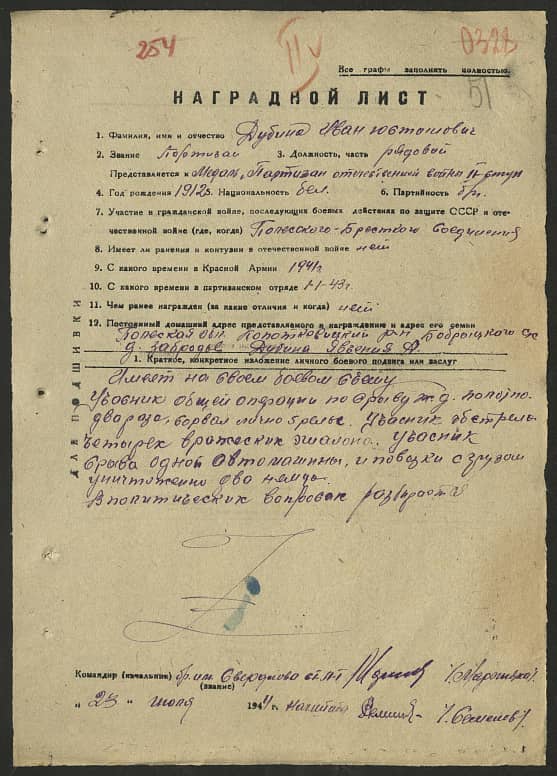 254
II
0328
Все графы заполнять полностью.
51
НАГРАДНОЙ ЛИСТ
1. Фамилия, имя и отчество Дубина Иван
2. Звание Партизан 3. Должность, часть рядовой
Представляется к Медаль, Партизан отечественной войны II ступ
4. Год рождения 1912 5. Национальность бел. 6. Партийность б/п.
7. Участие в гражданской войне, последующих боевых действиях по защите СССР и оте-
чественной войне (где, когда) Полесского-Бресткого Соединения
8. Имеет ли ранения и контузии в отечественной войне нет
9. С какого времени в Красной Армии 1941г
10. С какого времени в партизанском отряде 1-1-43г.
11. Чем ранее награжден (за какие отличия и когда) нет
12. Постоянный домашний адрес представляемого к награждению и адрес его семьи
Полеская обл. р-н с/с
д. Дубина
1. Краткое, конкретное изложение личного боевого подвига или заслуг
Имеят на своем боевом
Учасник общей операции по ж.д.
два раза, лично 5 рельс. Учасник обстрела
четырех вражеских эшалона. Учасник
одной автомашины, и повозки с грузом
уничтоженно два немца.
В политических вопросах
ДЛЯ ПОДШИВКИ
Командир (начальник) бр. им. Свердлова
(звание)
" 23 " июля 1944 г.